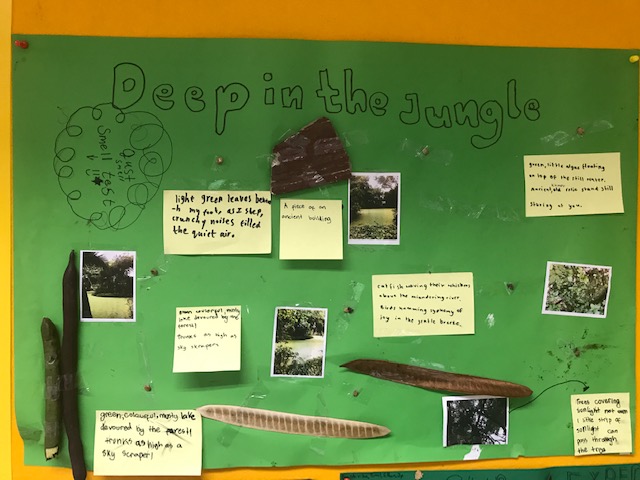 Deep in the Jungle
smell test
light green leaves
my foots, as I step,
crunchy noises filled
the quiet air.
A piece of an
ancient building
green, little algae floating
on top of the still water.
ancient, old ruin stand still
staring at you.
catfish waving their whiskers
about the miandering river.
Birds humming symphony of
joy in the gentle breeze.
lake devoured by the
trunks as high as
sky scrapers
green, colourful, musty lake
devoured by the forest!
trunks as high as a
sky scraper!
Trees covering
sunlight not even
1 little strip of
sunlight can
pass through
the trees